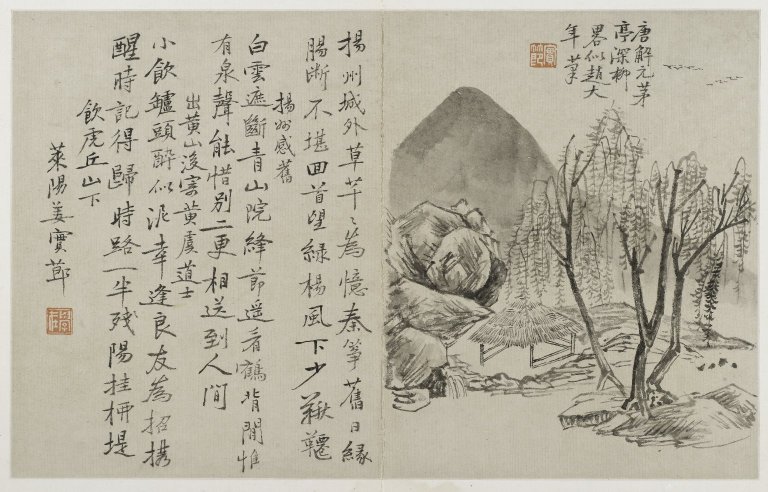 唐解元茅
亭深柳
畧似趙大
年筆
實節
揚州城外草芊〻為憶秦箏舊日緣
腸斷不堪回首望綠楊風下少鞦韆
揚州感舊
白雲遮斷青山院絳節遥看鶴背閒惟
有泉聲能惜別二更相送到人間
出黃山後寄黃虞道士
小飲鑪頭醉似泥幸逢良友為招携
醒時記得歸時路一半殘陽挂柳堤
飲虎丘山下
萊陽姜實節